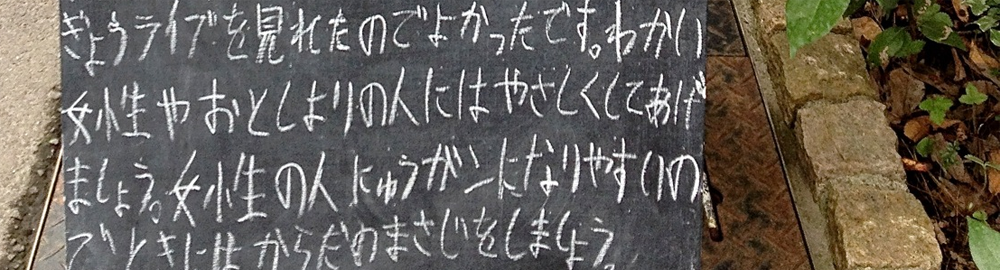 きょうライブを見れたのでよかったです。わかい
女性やおとしよりの人にはやさしくしてあげ
ましょう。女性の人にゅうがンになりやすいの
でときにはからだのまさじをしましょう。